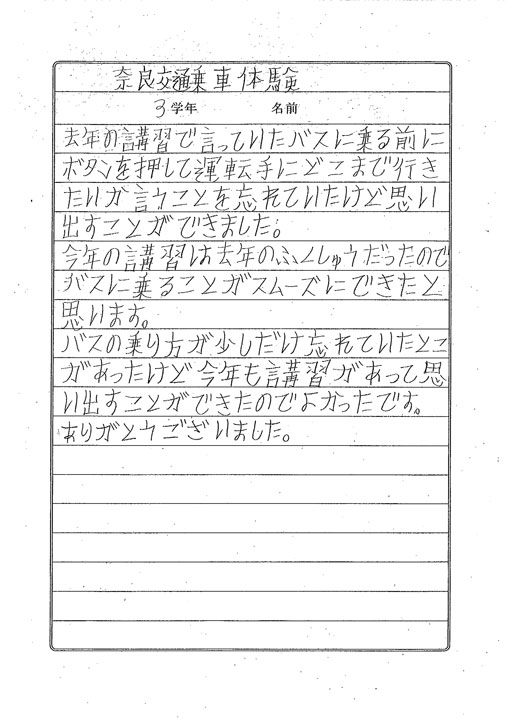 奈良交通乗車体験
3学年 名前
去年の講習で言っていたバスに乗る前に
ボタンを押して運転手にどこまで行き
たいか言うことを忘れていたけど思い
出すことができました。
今年の講習は去年のふくしゅうだったので
バスに乗ることがスムーズにできたと
思います。
バスの乗り方が少しだけ忘れていたとこ
があったけど今年も講習があって思
い出すことができたのでよかったです。
ありがとうございました。